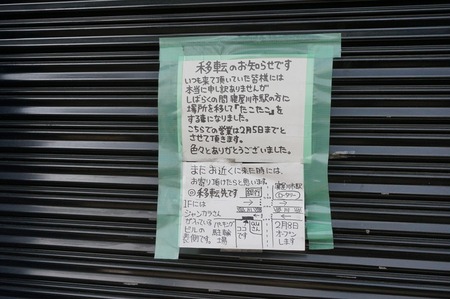 移転のお知らせです
いつも来て頂いていた皆様には
本当に申し訳ありませんが
しばらくの間 寝屋川市駅の方に
場所を移して『たこたこ』を
する事になりました。
こちらでの営業は2月5日までと
させて頂きます。
色々とありがとうございました。
またお近くに来た時には、
お寄り頂けたらと思います。
◎移転先です
寝屋川市駅
1Fには
ジャンカラさん
が入っている
ビルの
裏側です。
パーキング
駐輪場
ココ
です
2月8日
オープン
します